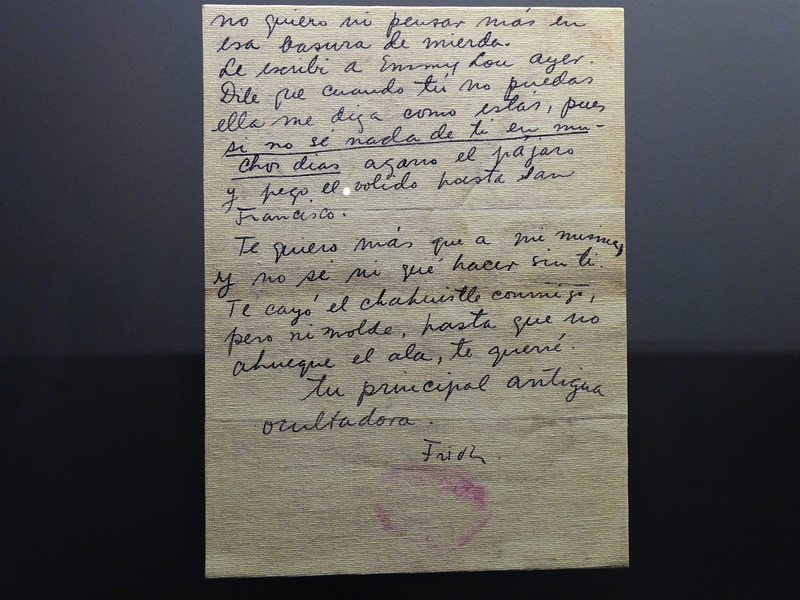 no quiero ni pensar más en
esa basura de mierda.
Le escribi a Emmy Lou ayer.
Dile que cuando tú no puedas
ella me diga como estás, pues
si no sé nada de ti en mu-
chos dias agarro el pájaro
y pego el volido hasta San
Francisco.
Te quiero más que a mi misma,
y no sé ni qué hacer sin ti.
Te cayó el chahuistle conmigo,
pero ni molde, hasta que no
ahueque el ala, te querré.
tu principal antigua
ocultadora.
Frida